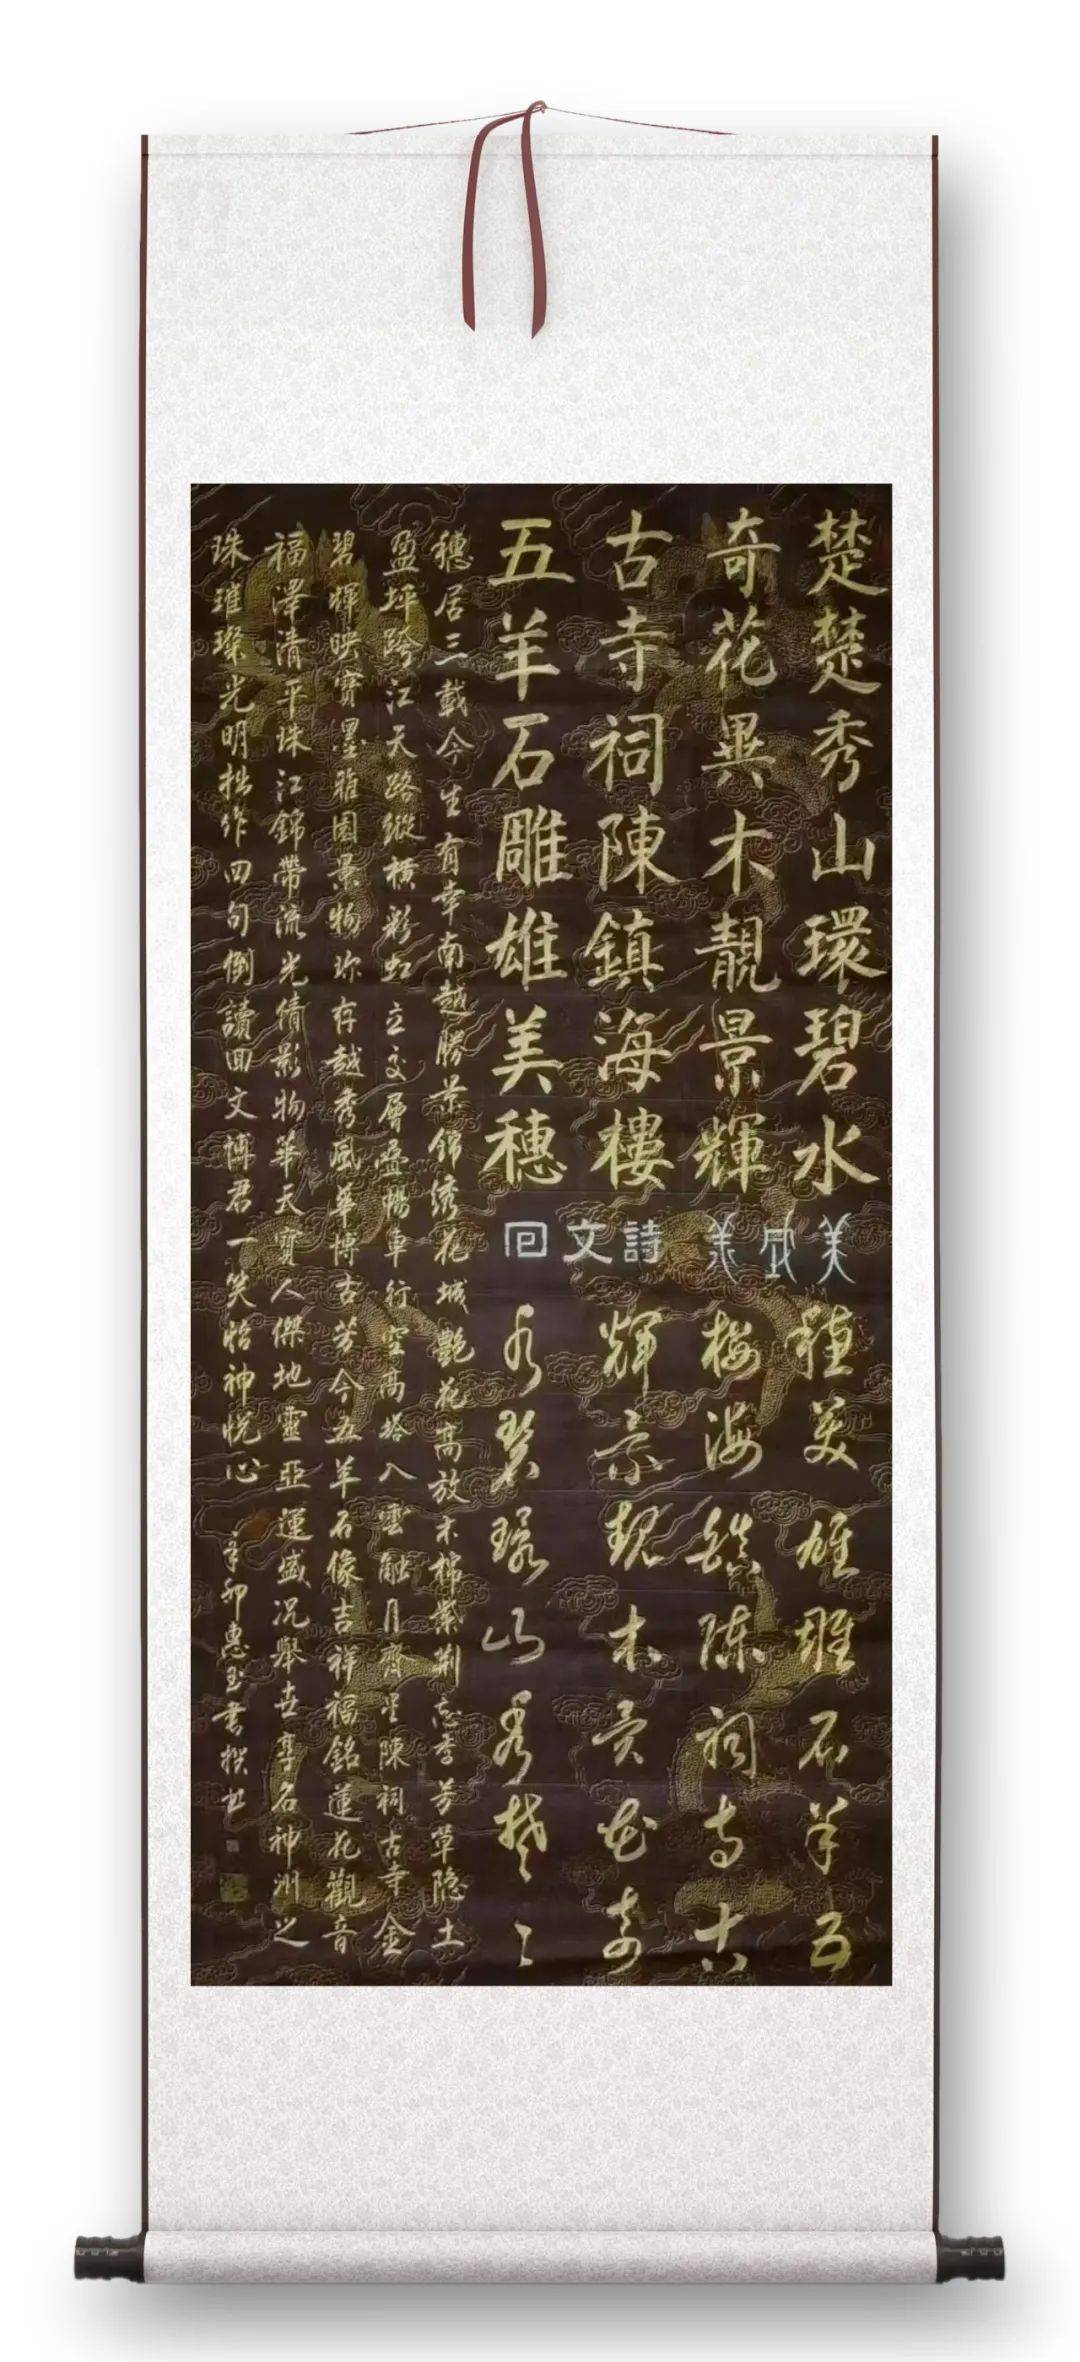 楚楚秀山環碧水
奇花異木靚景輝
古寺祠陳鎮海樓
五羊石雕雄美穗
回文詩
穗美雄雕石羊五
樓海鎮陳祠寺古
輝景靚木異花奇
水碧環山秀楚〻
穗居三載今生有幸南越勝景錦綉花城艷花高放木棉紫荆忘季芳草隐土
盈坪跨江天路縱橫彩虹立交層叠暢車行空高塔入雲融月齊星陳祠古寺金
碧輝映寶墨雅園景物珍存越秀風華博古芳今五羊石像吉祥福銘蓮花觀音
福澤清平珠江錦帶流光倩影物華天寶人傑地靈亞運盛况舉世享名神洲之
珠璀璨光明拙作四句倒讀回文博君一笑怡神悦心 辛卯惠玉書撰